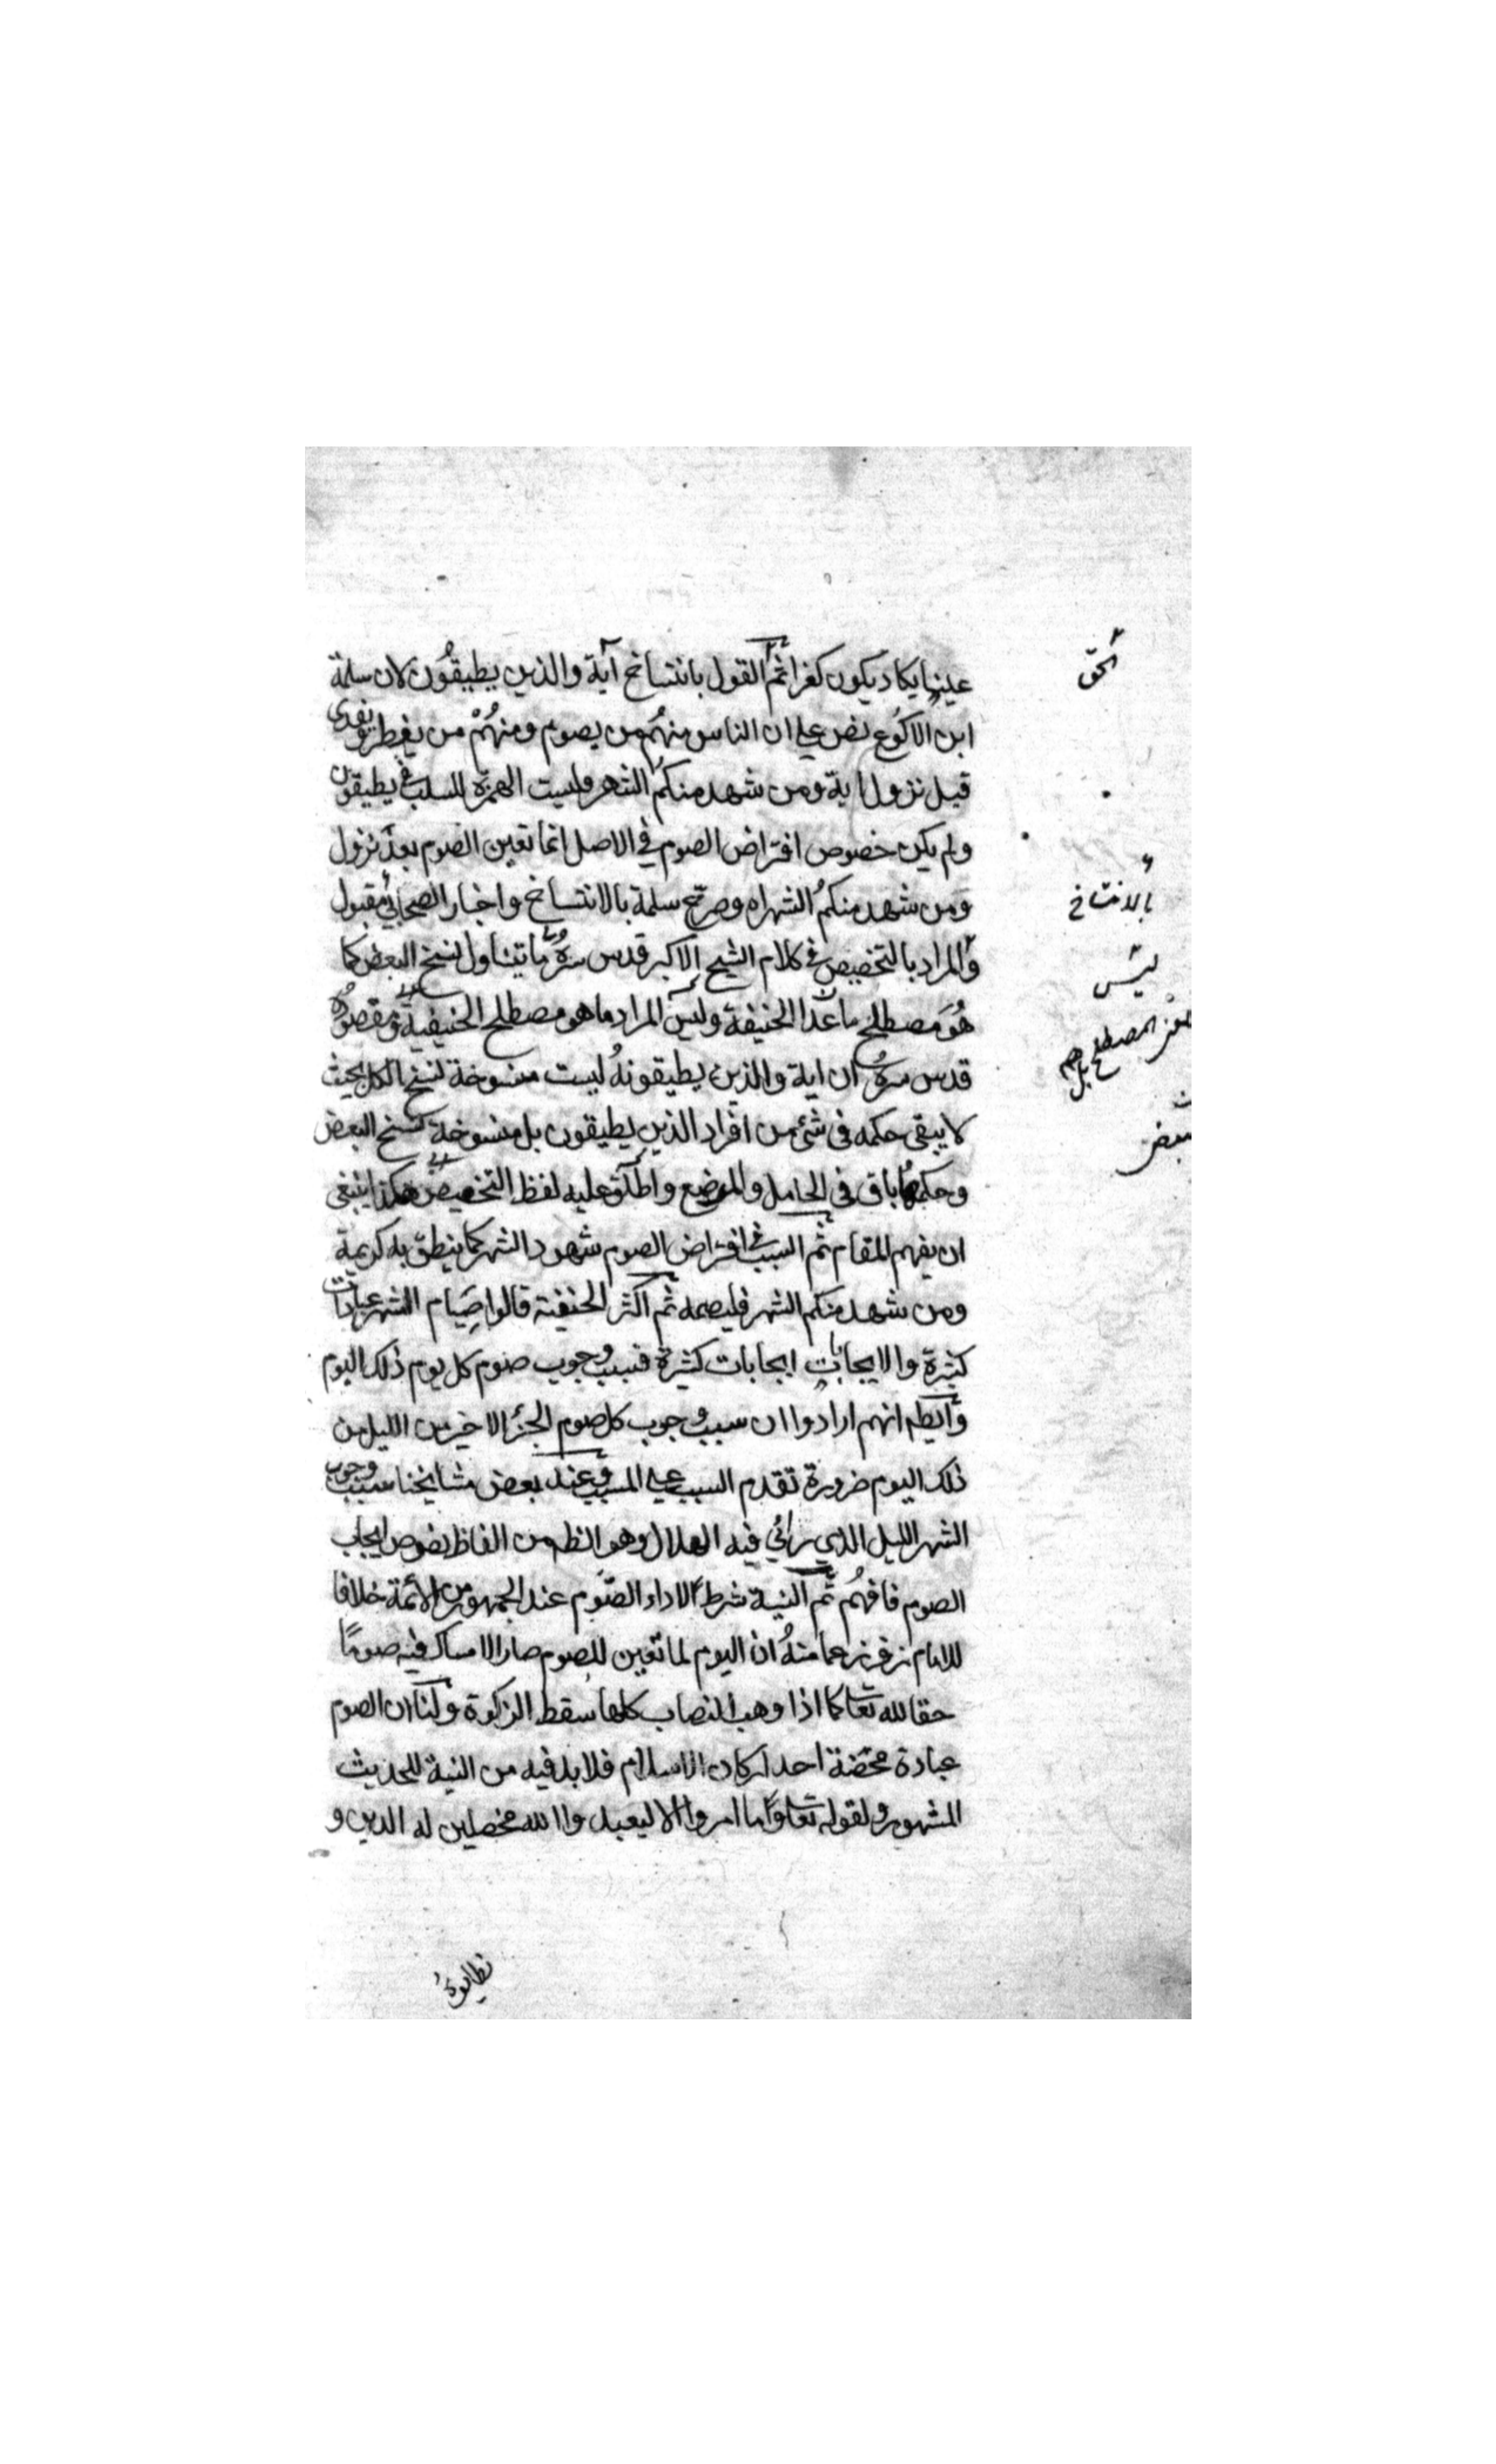 عينها يكاد يكون كفرا ثم القول بانتساخ آية والذين يطيقون لان سلمة
ابن الاكوع نص على ان الناس منهم من يصوم ومنهم من يفطر ويفدى
قبل نزول اية ومن شهد منكم الشهر وليست الهمزة للسلب في يطيقون
ولم يكن خصوص افتراض الصوم في الاصل انما تعين الصوم بعد نزول
ومن شهد منكم الشهر اه وصرح سلمة بالانتساخ واخبار الصحابي مقبول
والمراد بالتخصيص في كلام الشيخ الاكبر قدس سره ما يتناول نسخ البعض كما
هو مصطلح ما عدا الحنيفة وليس المراد ما هو مصطلح الحنيفية ومقصوده
قدس سره ان اية والذين يطيقونه ليست منسوخة نسخ الكل بحيث
لا يبقى حكمه فى شئ من افراد الذين يطيقون بل منسوخة كنسخ البعض
وحكمها باق فى الحامل والمرضع واطلق عليه لفظ التخصيص هكذا ينبغى
ان يفهم المقام ثم السبب في افتراض الصوم شهود الشهر كما ينطق به كريمة
ومن شهد منكم الشهر فليصمه ثم اكثر الحنفية قالوا صيام الشهر عبادات
كثيرة والايجابات ايجابات كثيرة فسبب وجوب صوم كل يوم ذلك اليوم
انهم ارادوا ان سبب وجوب كل صوم الجزء الاخير من الليل من
ذلك اليوم ضرورة تقدم السبب على المسبب وعند بعض مشايخنا سبب وجوب
الشهر الليل الذي رائي فيه الهلال وهو اظهر من الفاظ نصوص ايجاب
الصوم فافهم ثم النية شرط لاداء الصوم عند الجمهور من الأئمة خلافا
للامام زفر زعما منه ان اليوم لما تعين للصوم صار الامساك فيه صوما
حقا لله تعا كما اذا وهب النصاب كلها سقط الزكوة ولنا ان الصوم
عبادة محضة احد اركان الاسلام فلا بد فيه من النية للحديث
المشهور ولقوله تعا وما امروا الا ليعبدوا الله مخلصين له الدين و
الحق
بالانتساخ
ليس
المصطلح
بعض